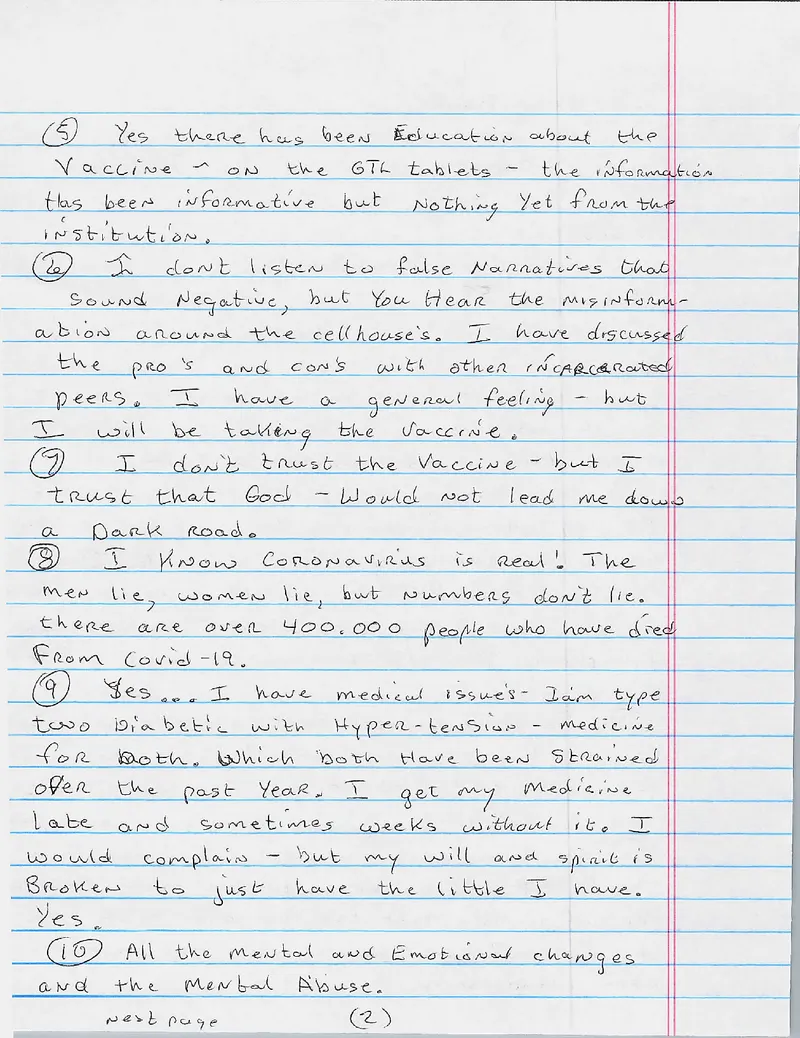 (5) Yes there has been Education about the
Vaccine - on the GTL tablets - the information
Has been informative but Nothing Yet from the
institution.
(6) I don't listen to false Narratives that
Sound Negative, but You Hear the misinform-
ation around the cellhouse's. I have discussed
the pro's and con's with other incarcerated
peers. I have a general feeling - but
I will be taking the Vaccine.
(7) I don't trust the Vaccine - but I
trust that God - Would not lead me down
a Dark road.
(8) I Know Coronavirus is real! The
men lie, women lie, but numbers don't lie.
there are over 400.000 people who have died
From Covid-19.
(9) Yes... I have medical issue's - Iam type
two Diabetic with Hyper-tension - medicine
for both. Which both Have been Strained
over the past Year. I get my Medicine
late and sometimes weeks without it. I
would complain - but my will and spirit is
Broken to just have the little I have.
Yes.
(10) All the mental and Emotional changes
and the Mental Abuse.
Next page (2)